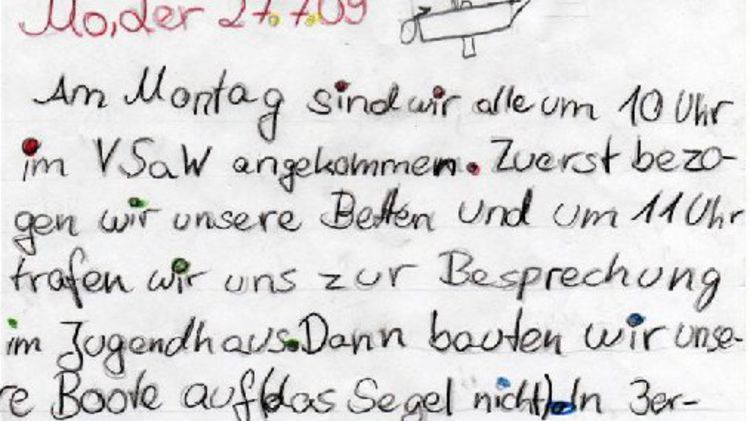 Mo, der 27.7.09
Am Montag sind wir alle um 10 Uhr
im VSaW angekommen. Zuerst bezo-
gen wir unsere Betten und um 11 Uhr
trafen wir uns zur Besprechung
im Jugendhaus. Dann bauten wir unse-
re Boote auf (das Segel nicht). In 3er-